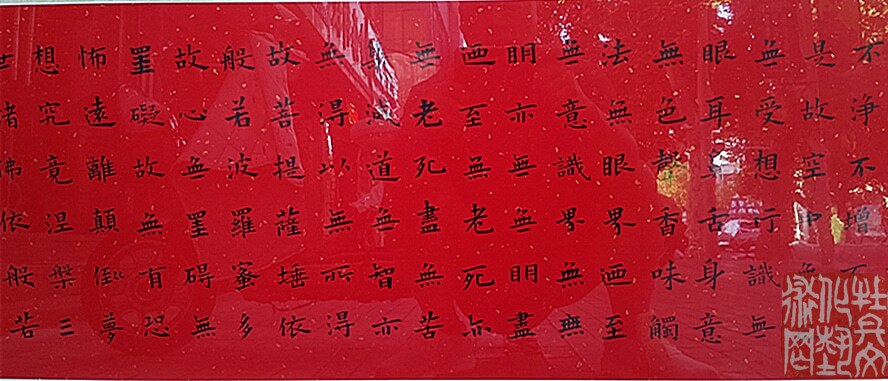 不淨不增不
是故空中無
無受想行識無
眼耳鼻舌身意
無色聲香味觸
法無眼界迺至
無意識界無無
明亦無無明盡
迺至無老死亦
無老死盡無苦
集滅道無智亦
無得以無所得
故菩提薩埵依
般若波羅蜜多
故心無罣礙無
罣礙故無有恐
怖遠離顛倒夢
想究竟涅槃三
世諸佛依般若